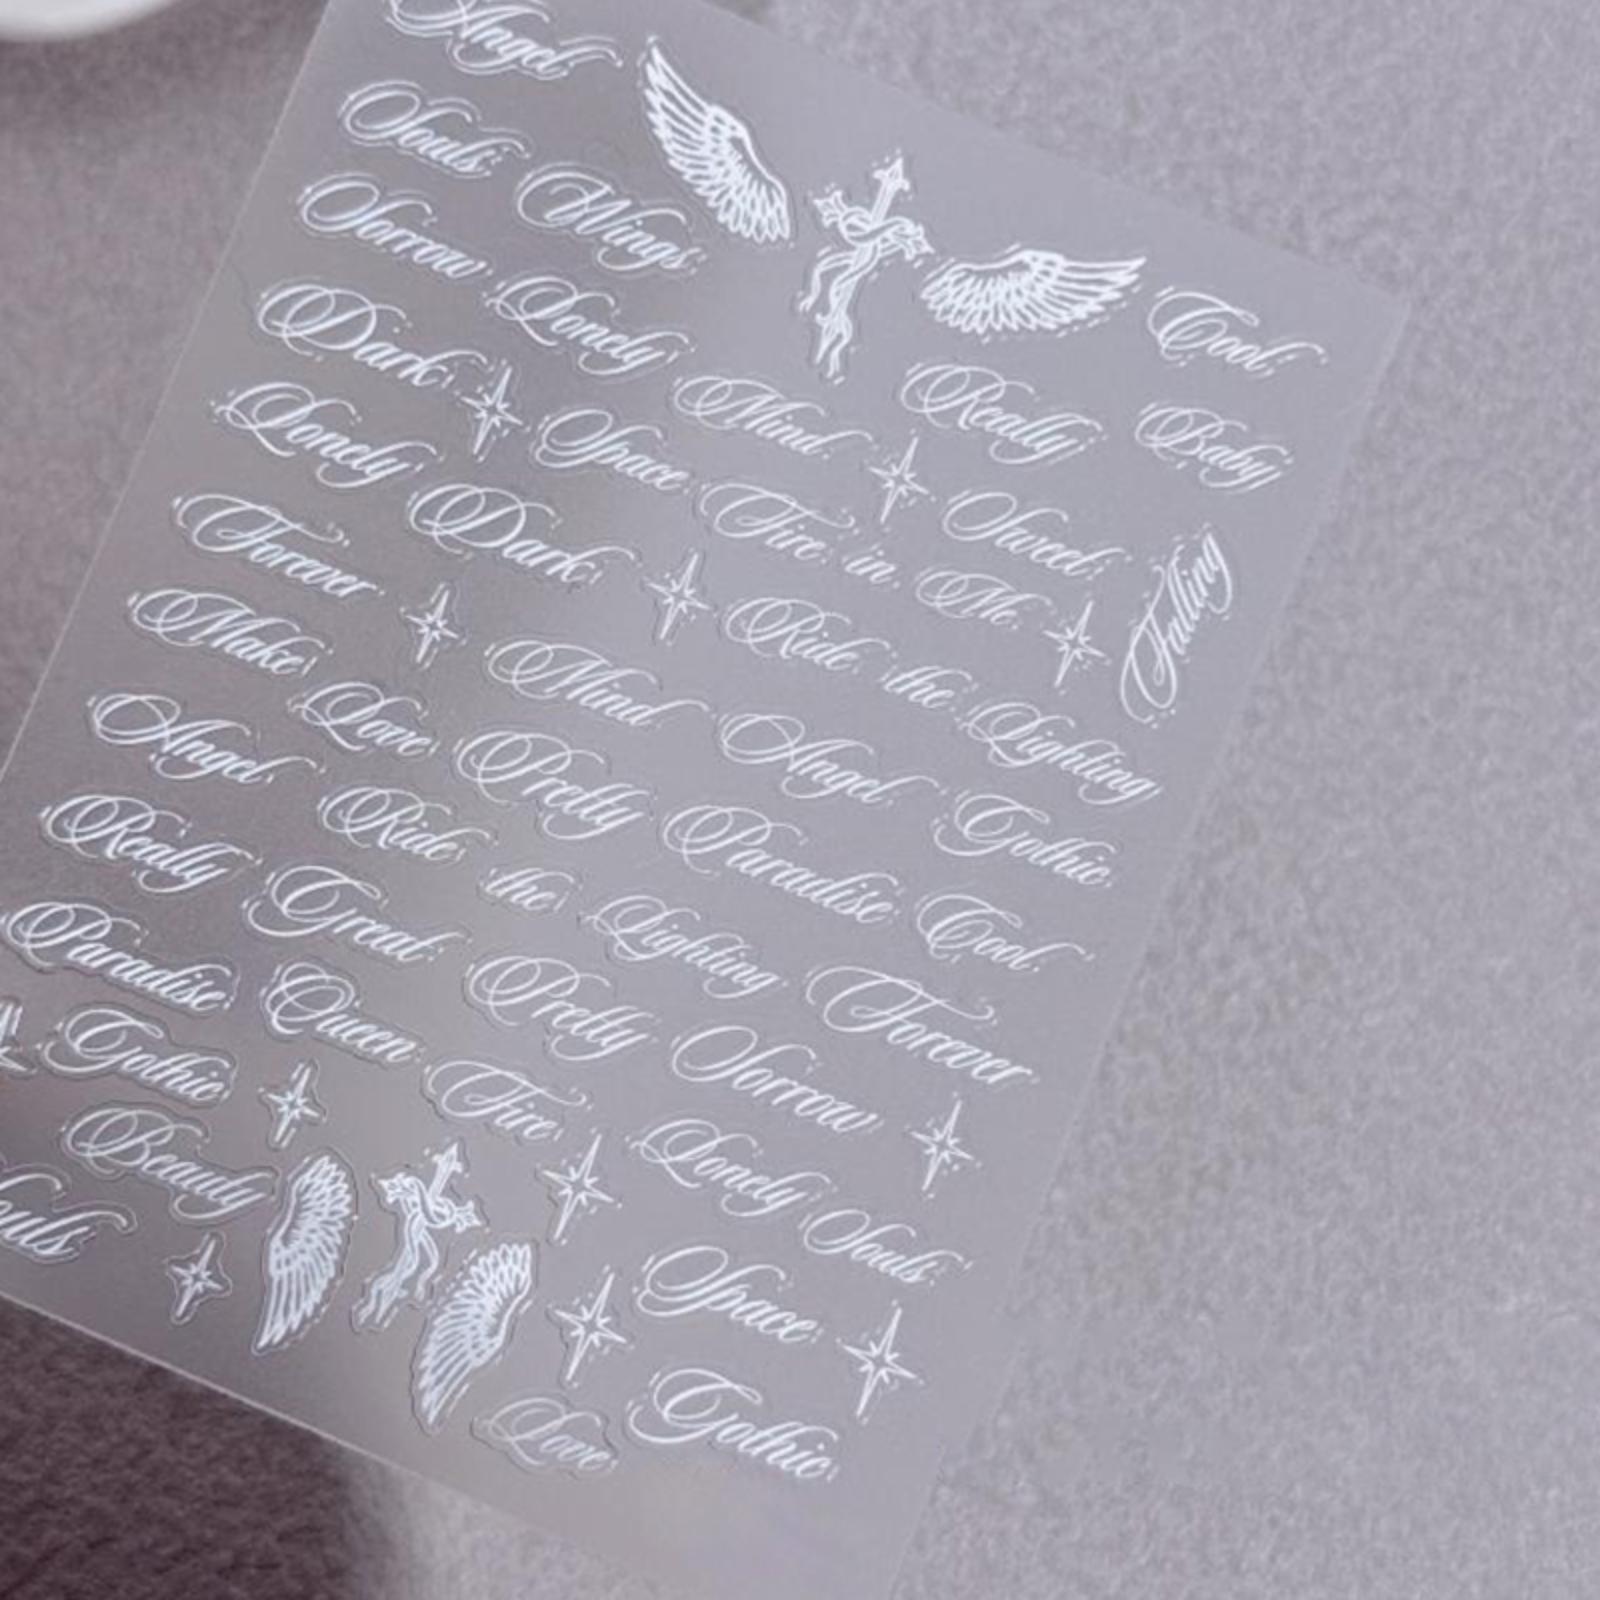 Angel
Souls Wings
Sorrow Lonely Cool
Dark Mind Really Baby
Lonely Space Fire in Me Sweet Falling
Forever Dark Ride the Lighting
Make Love Mind Angel Gothic
Angel Pretty Paradise Cool
Really Ride the Lighting Forever
Paradise Great Pretty Sorrow
Gothic Queen Fire Lonely Souls
Beauty Space
Souls Love Gothic